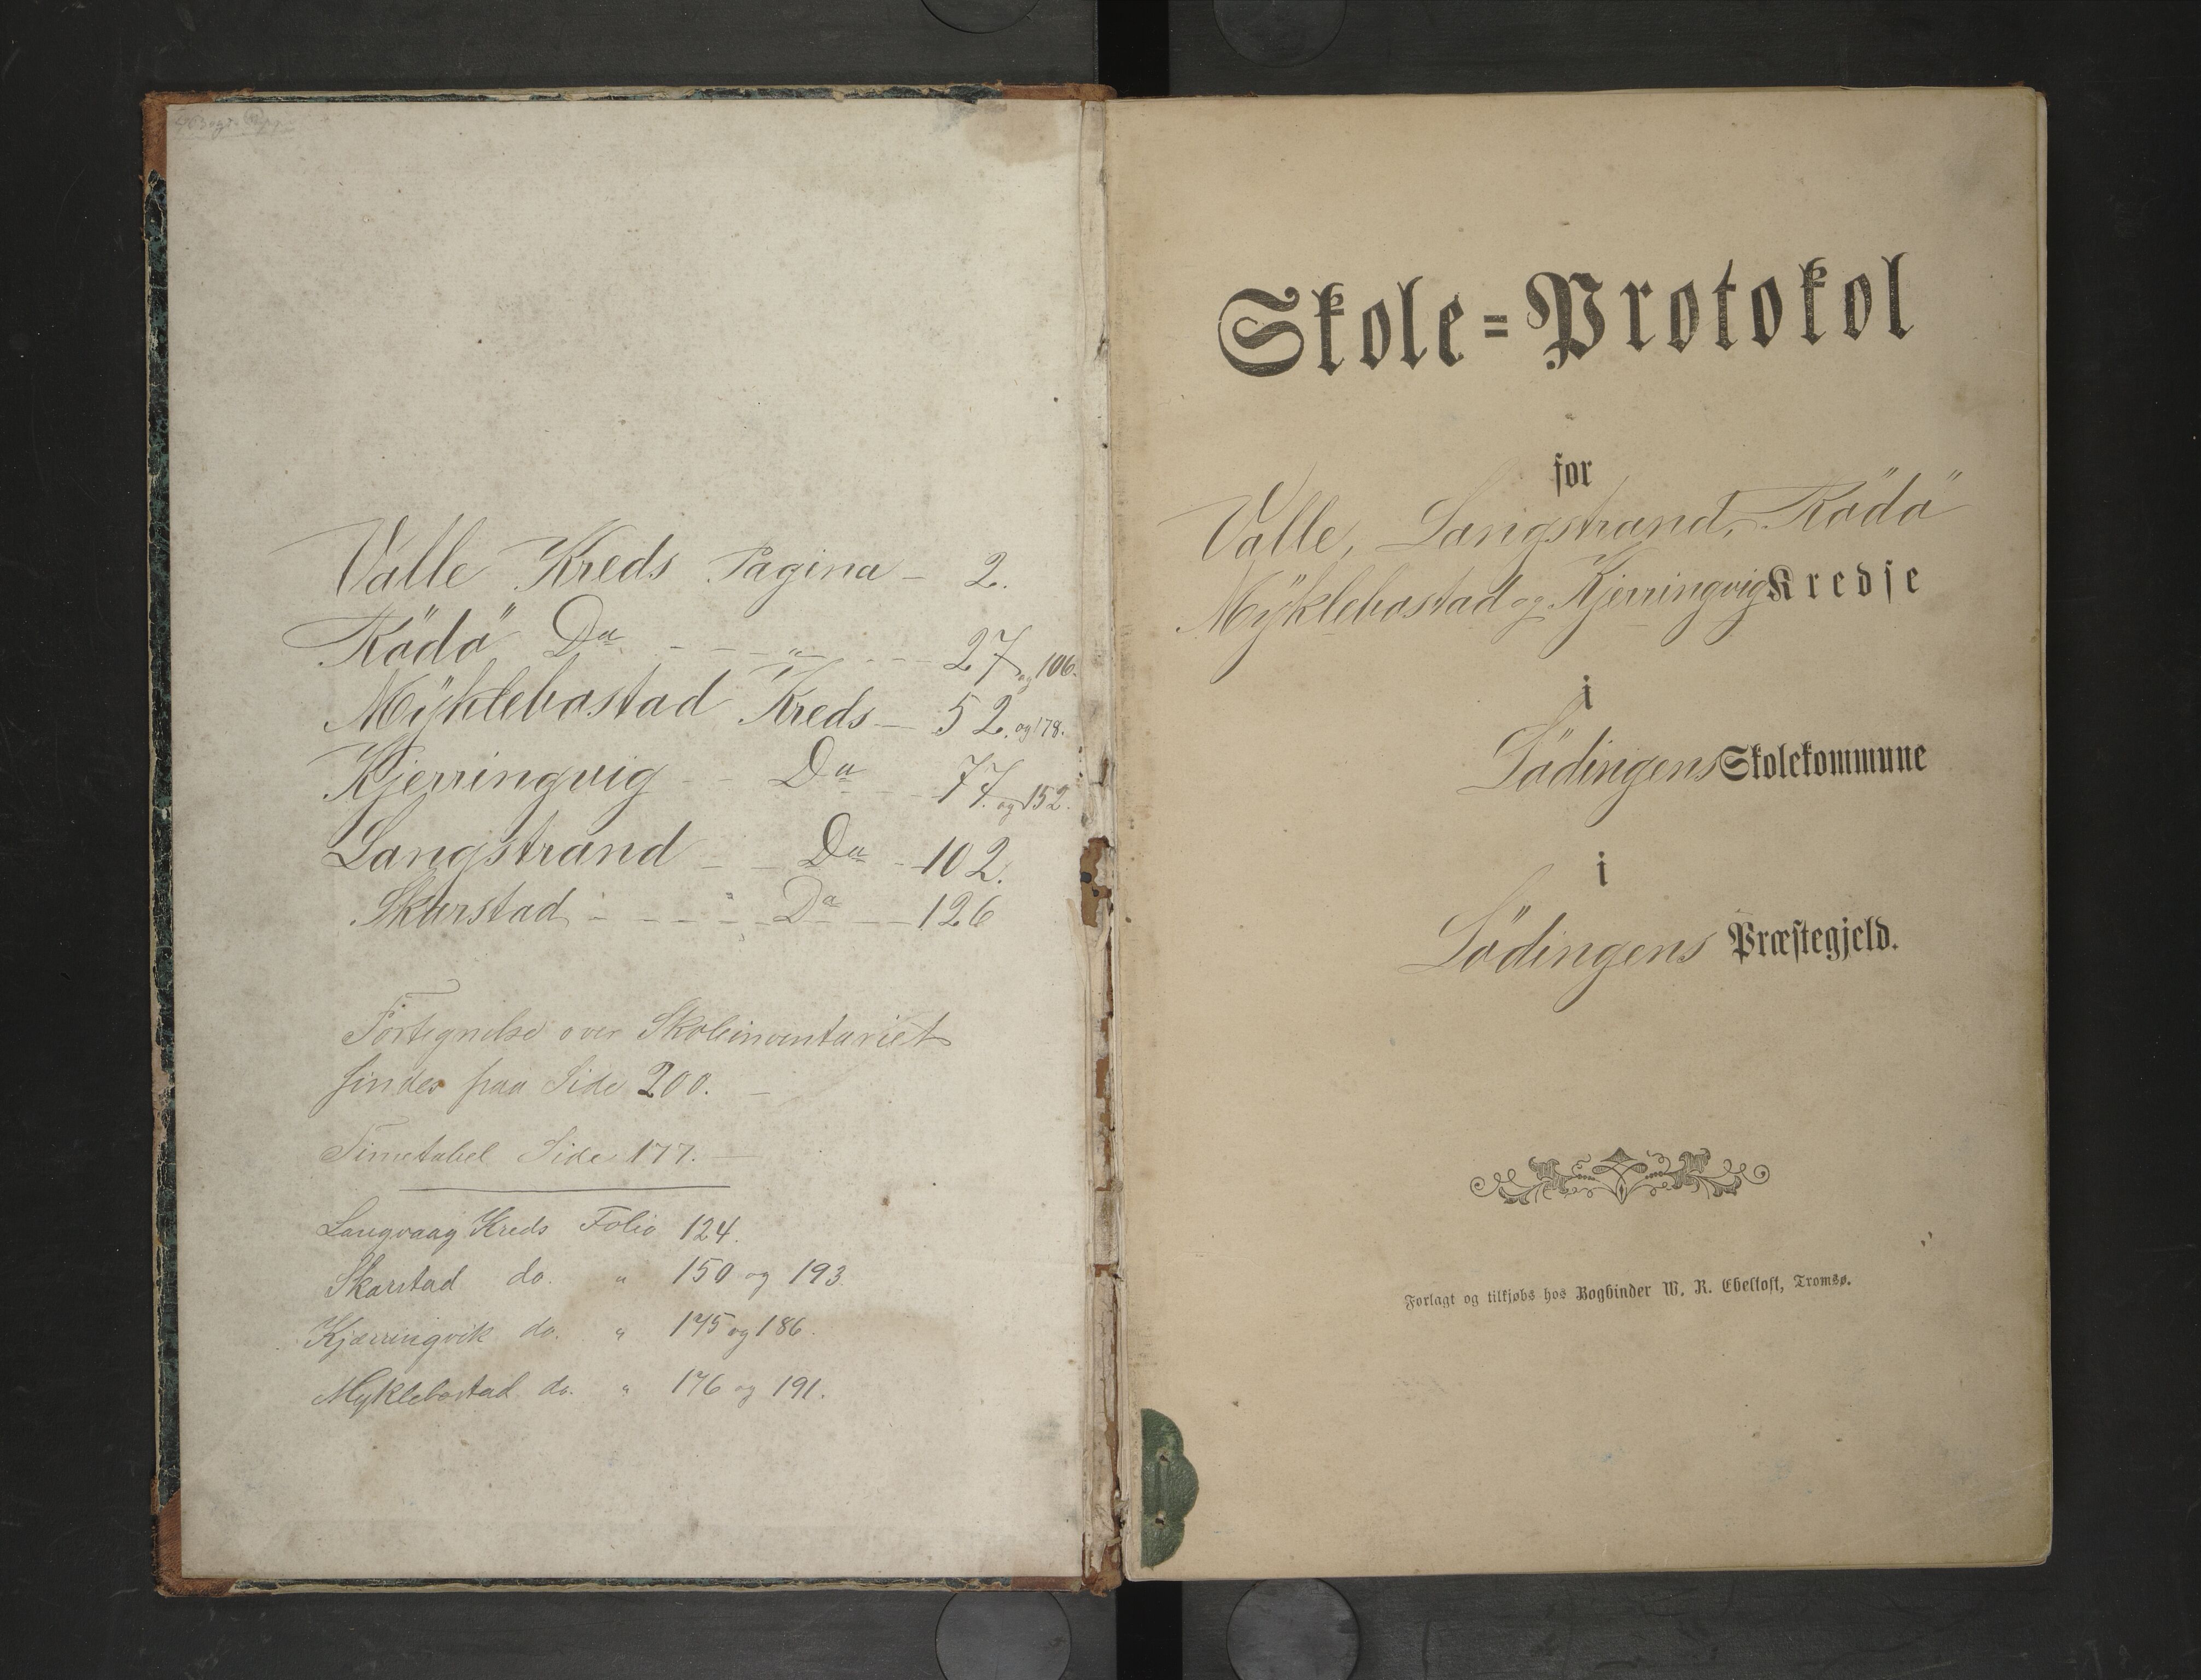 Valle Kreds Pagina - 2.
Rödö Do - - " - - - 27 og 106.
Myklebostad Kreds - 52. og 178.
Kjerringvig - - Do - - 77. og 152.
Langstrand - - Do - 102.
Skarstad - - - " - Do - - 126
Fortegnelse over Skoleinventariet
findes paa Side 200. -
Timetabel Side 177. -
Langvaag Kreds Folio 124.
Skarstad do. " 150 og 193.
Kjærringvik do. " 175 og 186.
Myklebostad do. " 176 og 191.
Skole=Protokol
for
Valle, Langstrand, Rödö
Myklebostad og Kjerringvig Kredse
i
Lödingens Skolekommune
i
Lödingens Præstegjeld.
Forlagt og tilkjøbs hos Bogbinder W. R. Ebeltoft, Tromsø.